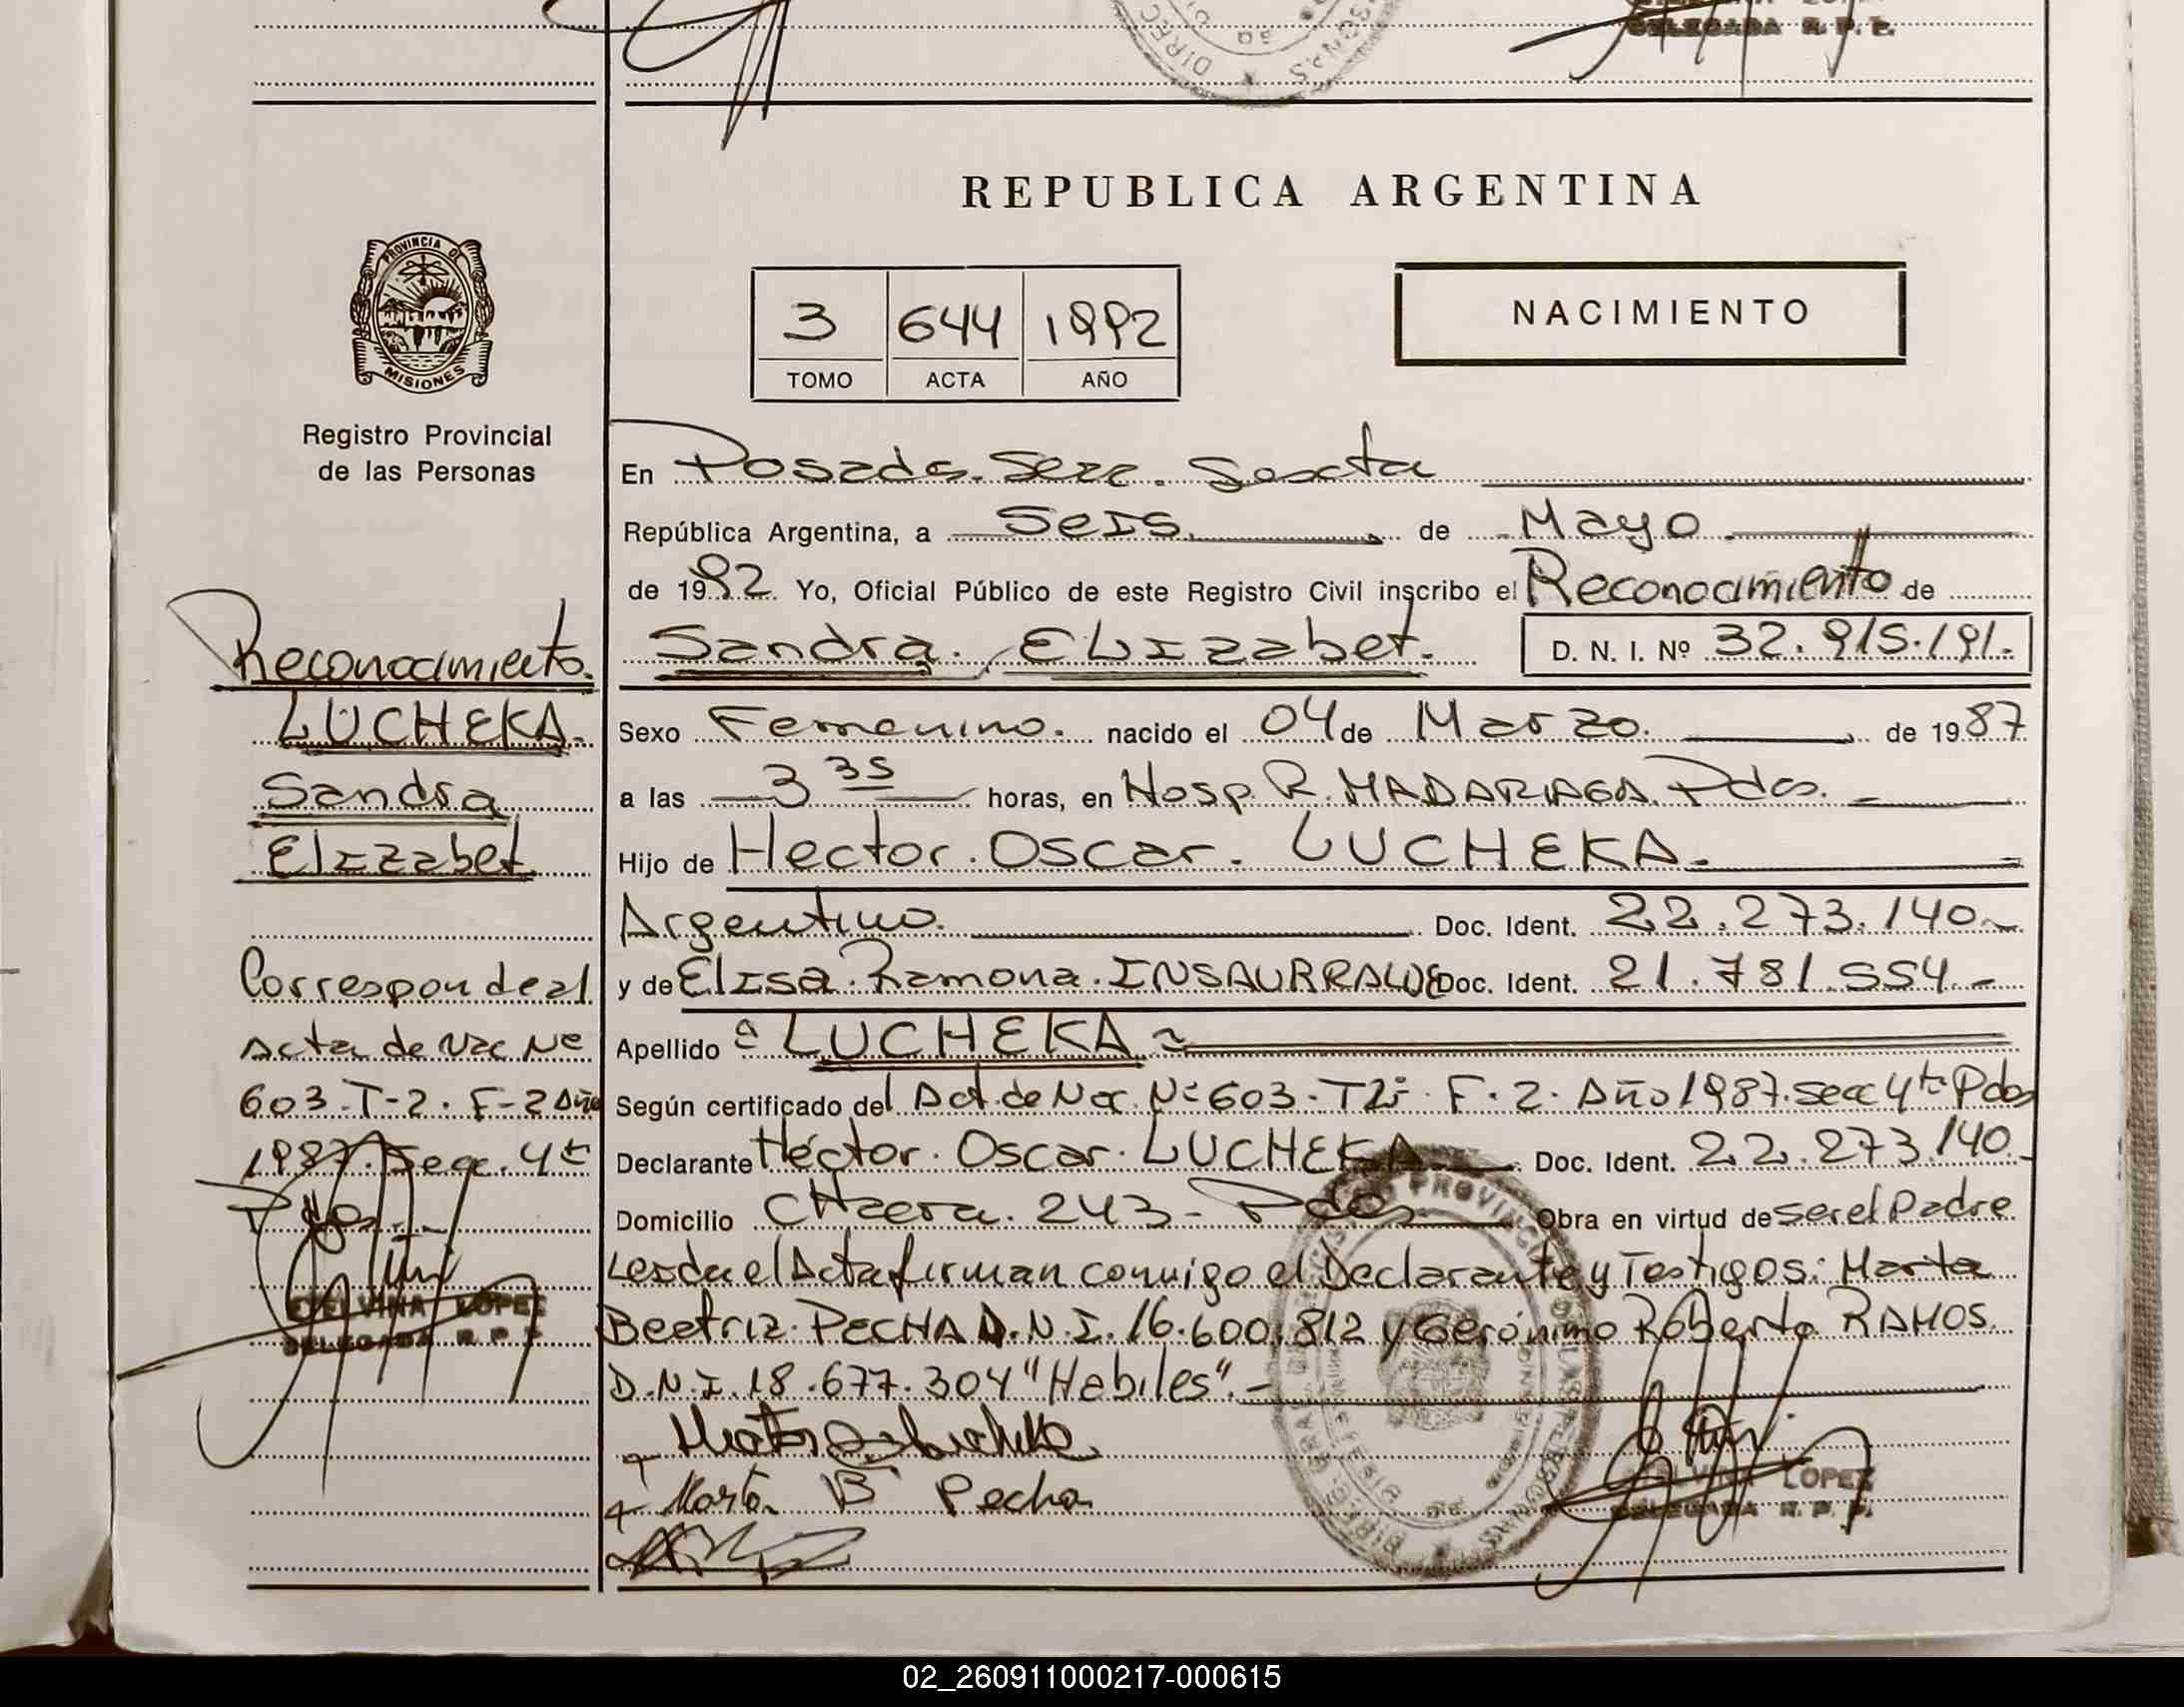 DELEGADA R. P. P.
REPUBLICA ARGENTINA
PROVINCIA DE
MISIONES
Registro Provincial
de las Personas
3 644 1992
TOMO ACTA AÑO
NACIMIENTO
En Posadas. Secc. Sexta
República Argentina, a Seis de Mayo
de 1992. Yo, Oficial Público de este Registro Civil inscribo el Reconocimiento de
Sandra Elizabet. D. N. I. Nº 32.915.191.-
Sexo Femenino. nacido el 04 de Marzo. de 1987
a las 3 35 horas, en Hosp. R. MADARIAGA. Pdas.
Hijo de Hector. Oscar. LUCHEKA.
Argentino. Doc. Ident. 22.273.140
y de Elisa. Ramona. INSAURRALDE Doc. Ident. 21.781.554.-
Apellido LUCHEKA
Según certificado del Act. de Nac. Nº 603. T 2º. F. 2. Año 1987. Secc 4ta Pdas
Declarante Héctor. Oscar. LUCHEKA Doc. Ident. 22.273.140.
Domicilio CHacra. 243 - Pdas Obra en virtud de ser el Padre
Leída el Acta firman conmigo el Declarante y Testigos: Marta
Beatriz. PECHA D.N.I. 16.600.812 y Gerónimo Roberto RAMOS.
D.N.I. 18.677.304 "Habiles".-
Marta B Pecha
LOPEZ
DELEGADA R. P. P.
Reconocimiento.
LUCHEKA.
Sandra
Elizabet
Corresponde al
Acta de Nac Nº
603. T-2. F-2 Año
1987. Secc. 4ta
Pdas.
ETELVINA LOPEZ
DELEGADA R. P. P.
02_260911000217-000615